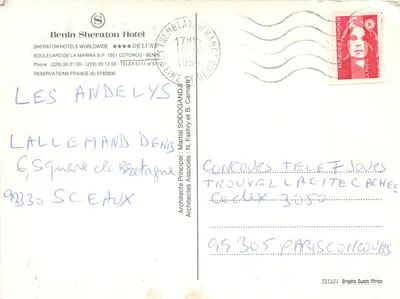 Benin Sheraton Hotel
SHERATON HOTELS WORLDWIDE ★★★★ DE LUXE
BOULEVARD DE LA MARINA B.P. 1901 COTONOU - BENIN
Phone (229) 30.01.00 - 30.12.56 - TELEX 5111 et
RESERVATIONS FRANCE (6) 0790800
LES ANDELYS
LALLEMAND DENIS
6, Square de Bretagne
92330 SCEAUX
Architecte Principal : Martial SODOGANDJI
Architectes Associés : N. Fakhry et B. Camara
TREMBLAY EN FRANCE
17H
SEINE ST DENIS
CONCOURS TELE 7 JOURS
TROUVEZ LA CITE CACHEE
Cedex 3050
99305 PARIS CONCOURS
Graphic Ouest Africa